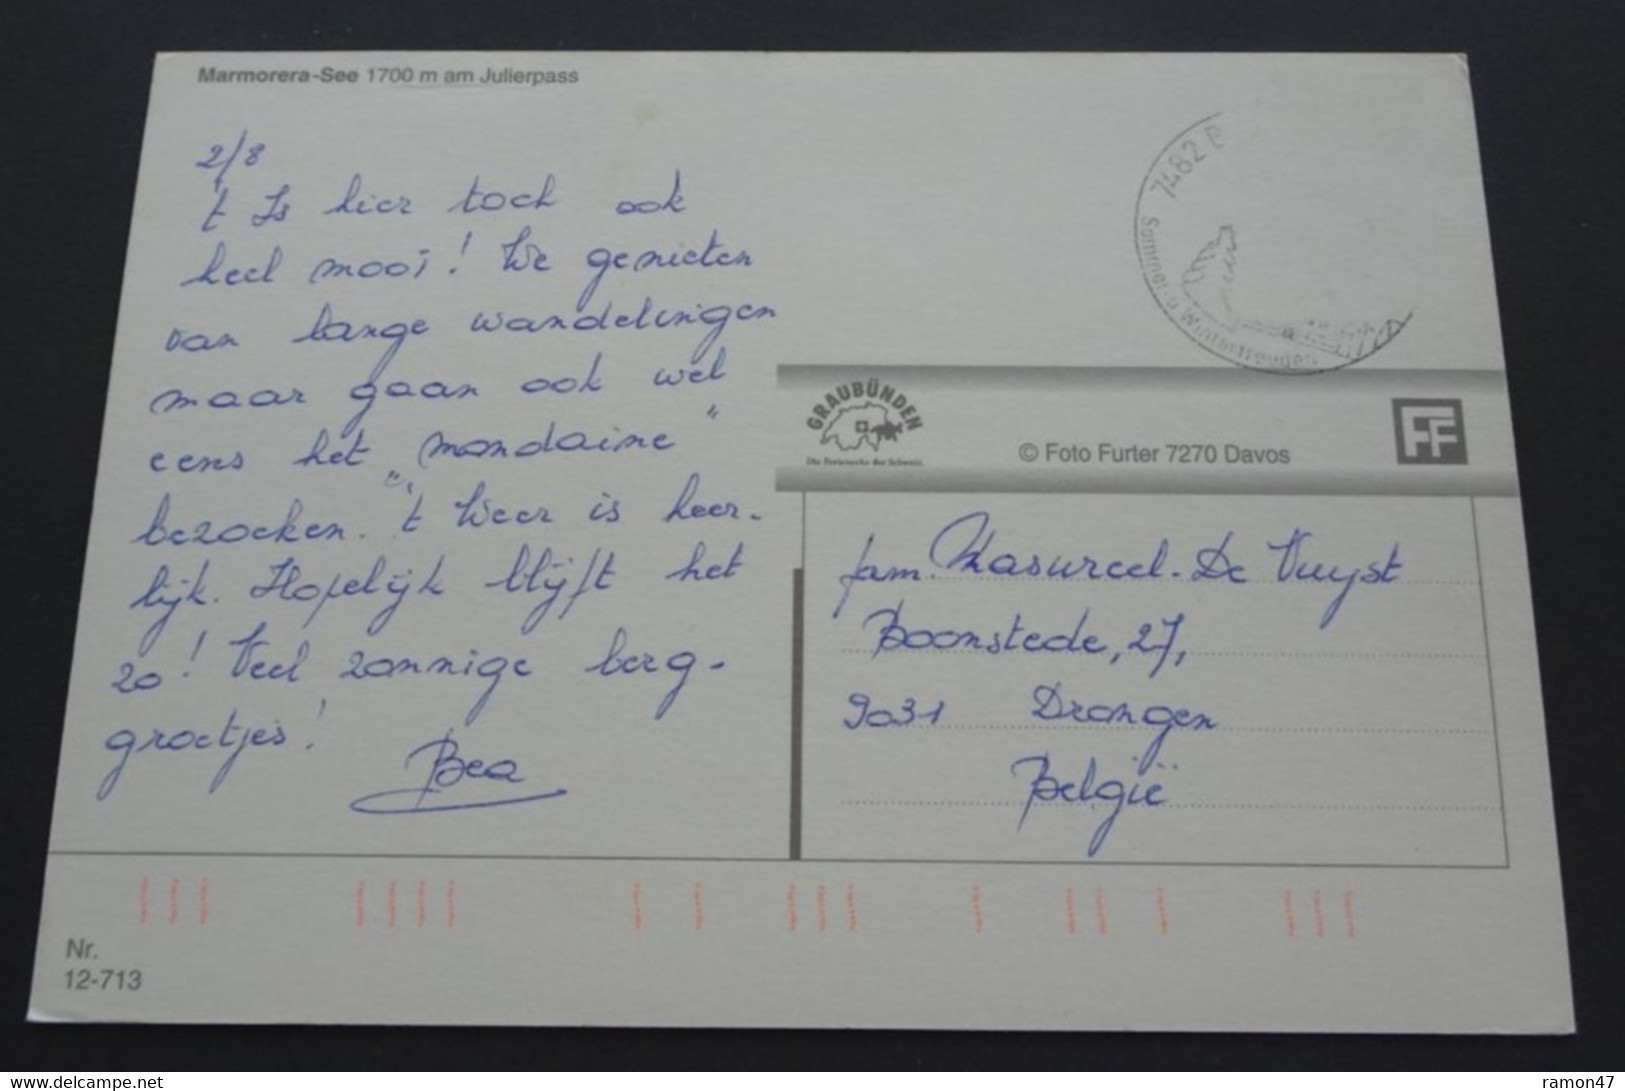 Marmorera-See 1700 m am Julierpass
2/8
't Is hier toch ook
heel mooi! We genieten
van lange wandelingen
maar gaan ook wel
eens het „mondaine"
bezoeken. 't Weer is heer-
lijk. Hopelijk blijft het
zo! Veel zonnige berg-
groetjes!
Bea
7482 B
Sommer- u. Winterfreuden
GRAUBÜNDEN
Die Ferienecke der Schweiz.
© Foto Furter 7270 Davos
FF
fam. Masureel-De Vuyst
Boonstede, 27,
9031 Drongen
België
Nr.
12-713
www.delcampe.net
ramon47